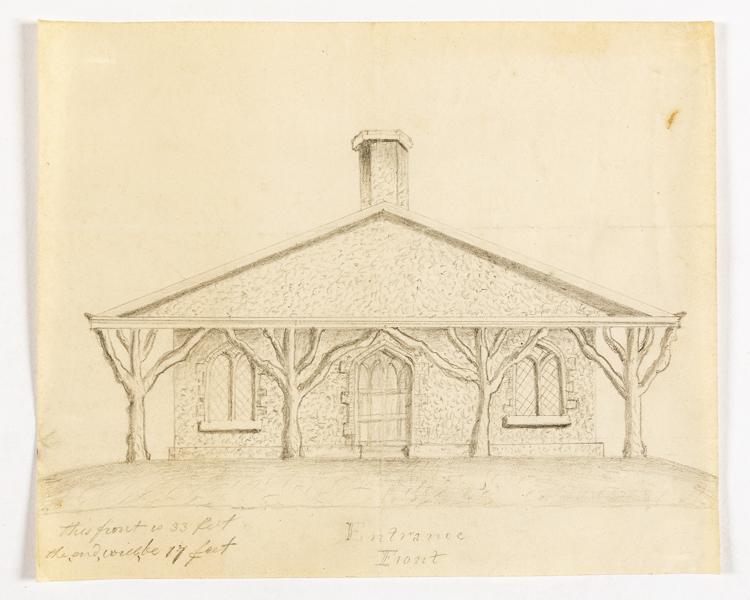 this front is 33 feet
the end will be 17 feet
Entrance
Front